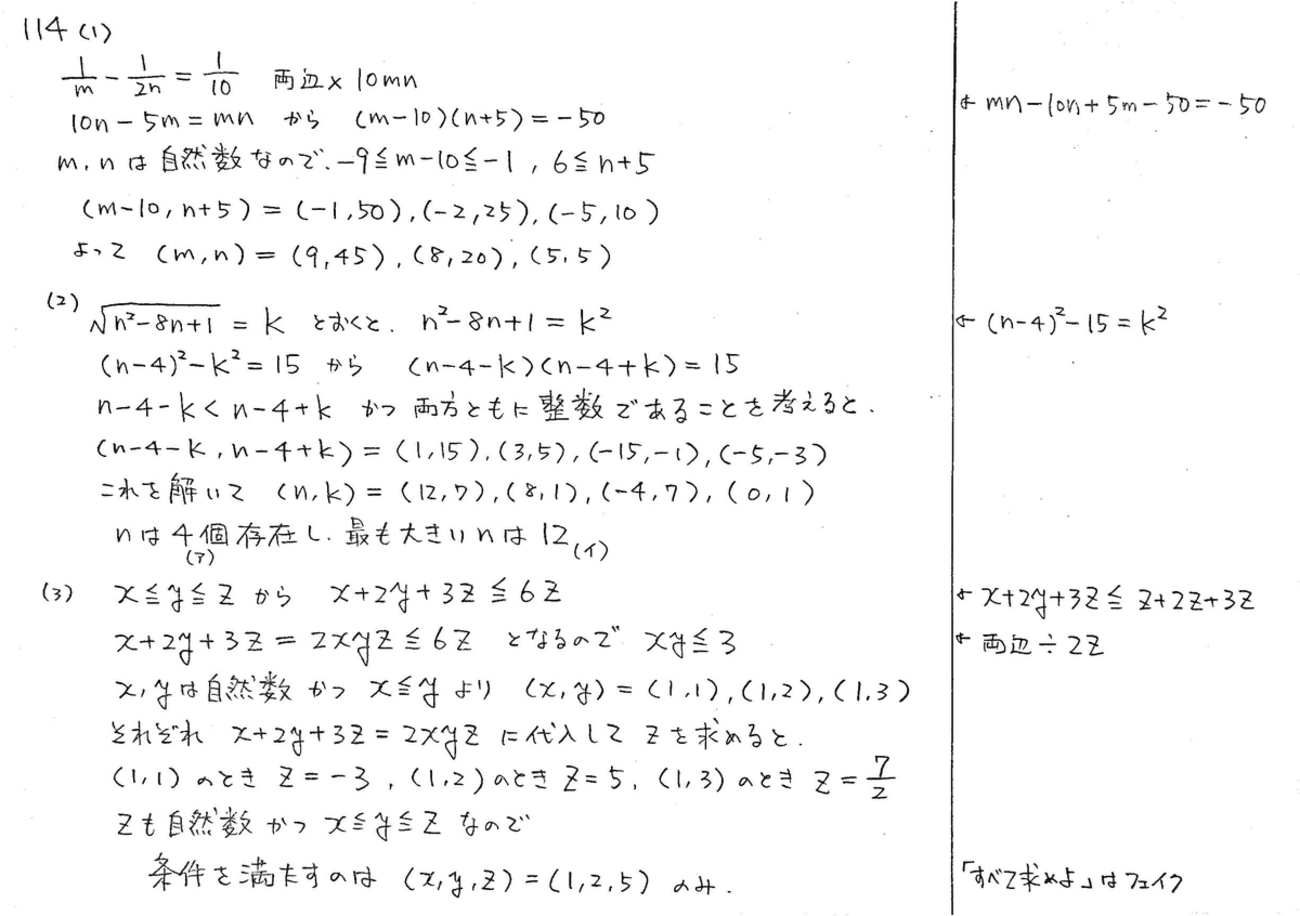 114 (1)
1/m - 1/2n = 1/10 両辺×10mn
10n-5m=mn から (m-10)(n+5)=-50
← mn-10n+5m-50=-50
m,nは自然数なので、-9≦m-10≦-1, 6≦n+5
(m-10,n+5)=(-1,50),(-2,25),(-5,10)
よって (m,n)=(9,45),(8,20),(5,5)
(2) √(n²-8n+1) = k とおくと、n²-8n+1=k²
← (n-4)²-15=k²
(n-4)²-k²=15 から (n-4-k)(n-4+k)=15
n-4-k<n-4+k かつ 両方ともに整数であることを考えると、
(n-4-k,n-4+k)=(1,15),(3,5),(-15,-1),(-5,-3)
これを解いて (n,k)=(12,7),(8,1),(-4,7),(0,1)
nは4個存在し、最も大きいnは12
(ア) (イ)
(3) x≦y≦z から x+2y+3z≦6z
← x+2y+3z≦z+2z+3z
x+2y+3z=2xyz≦6z となるので xy≦3
← 両辺÷2z
x,yは自然数 かつ x≦y より (x,y)=(1,1),(1,2),(1,3)
それぞれ x+2y+3z=2xyz に代入して zを求めると、
(1,1)のとき z=-3, (1,2)のとき z=5, (1,3)のとき z=7/2
zも自然数 かつ x≦y≦z なので
条件を満たすのは (x,y,z)=(1,2,5) のみ.
「すべて求めよ」はフェイク